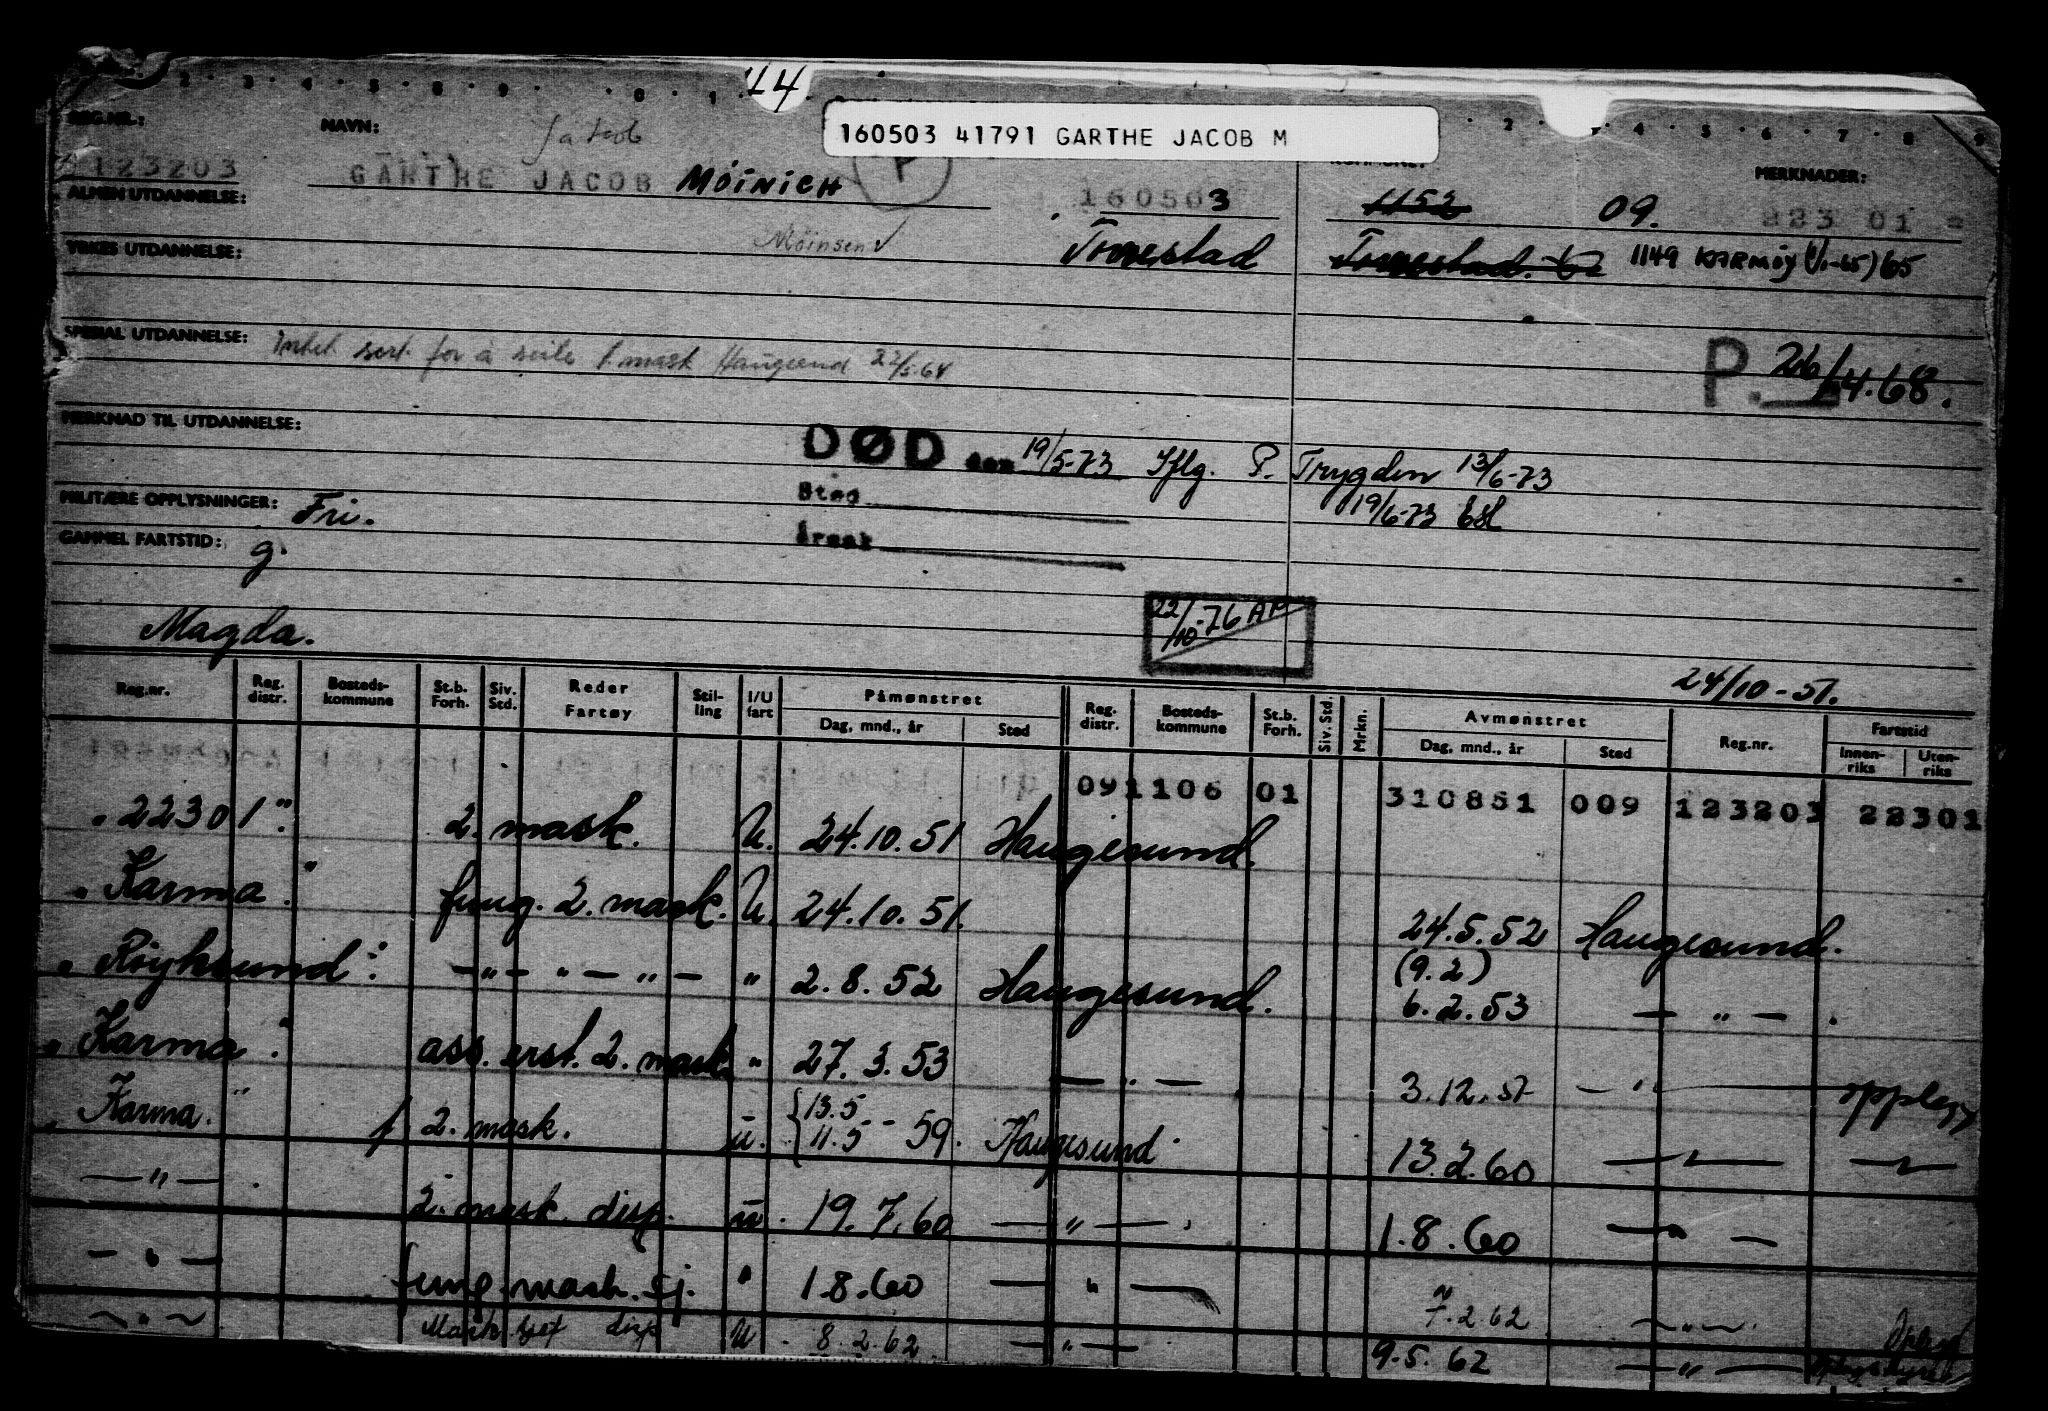 14
160503 41791 GARTHE JACOB M
REG.NR.: NAVN: Jakob MERKNADER:
123203 GARTHE JACOB MÖINICH P 160503 1152 09. 223 01
ALMEN UTDANNELSE:
Möinsen √ Torvestad Torvestad. 1149 KARMØY (1/1-65) 65
YRKES UTDANNELSE:
SPESIAL UTDANNELSE: Intet sert. for å seile f. mask Haugesund 22/5-64
P. 26/4.68.
MERKNAD TIL UTDANNELSE:
DØD den 19/5-73 Iflg. P. Trygden 13/6-73
Sted 19/6-73
MILITÆRE OPPLYSNINGER: Fri.
Årsak
GAMMEL FARTSTID: g.
22/10-76 AP
Magda.
24/10-51.
Reg.nr. Reg. distr. Bosteds-kommune St.b. Forh. Siv. Std. Reder Fartøy Stil-ling I/U fart Påmønstret Reg. distr. Bosteds-kommune St.b. Forh. Siv. Std. Mrkn. Avmønstret Reg.nr. Fartstid
Dag, mnd., år Sted Dag, mnd., år Sted Innen-riks Uten-riks
091106 01 310851 009 123203 22301
"22301". 2. mask. U. 24.10.51 Haugesund.
"Karma". fung. 2. mask. U. 24.10.51. 24.5.52 Haugesund.
"Röyksund". — " — " — " — " 2.8.52 Haugesund. (9.2) 6.2.53 — " — .
"Karma". ass. erst. 2. mask. " 27.3.53 — " — . 3.12.57 — " — opplegg
"Karma." f 2. mask. u. {13.5 11.5 - 59. Haugesund. 13.2.60 — " — — " —
— " — . 2. mask. disp. u. 19.7.60 — " — . 1.8.60 — " —
— " — fung. mask. sj. " 1.8.60 — " — 7.2.62 — " — .
— " — Mask sjef disp U. 8.2.62. — " — 9.5.62 — " —